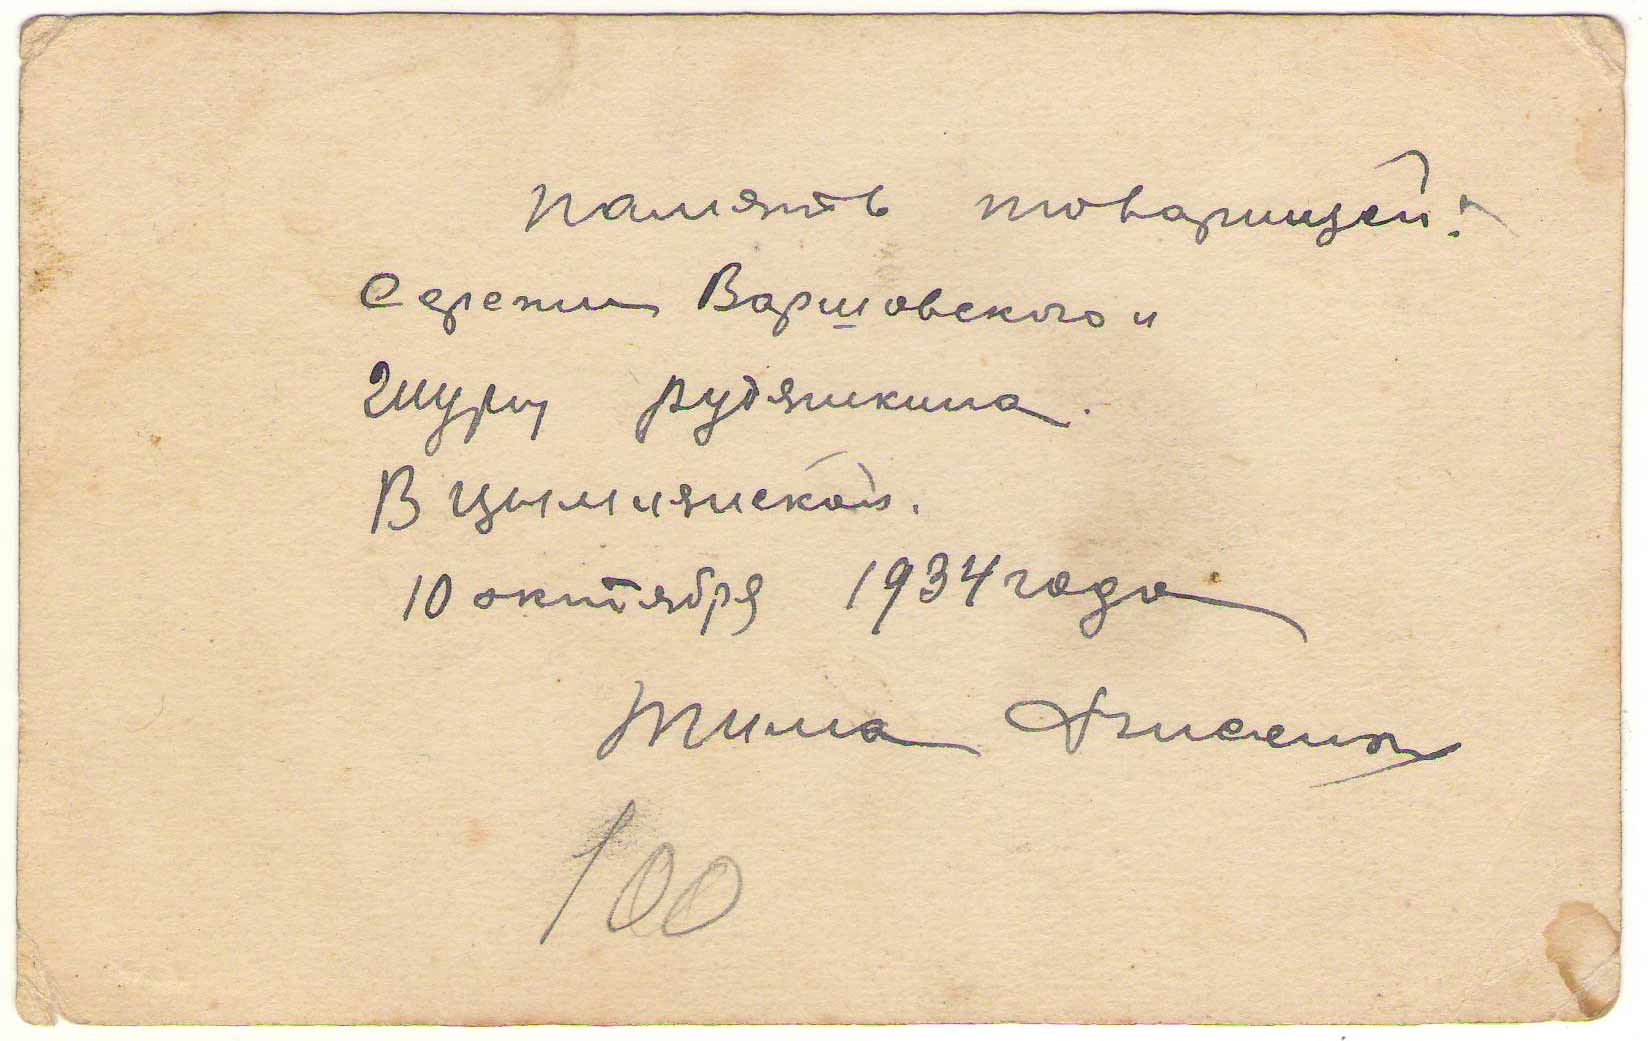 память товарищей!
Сережи Варшовского и
Шуры Рудяшкина.
В Цымлянской.
10 октября 1934 года
Тима
100